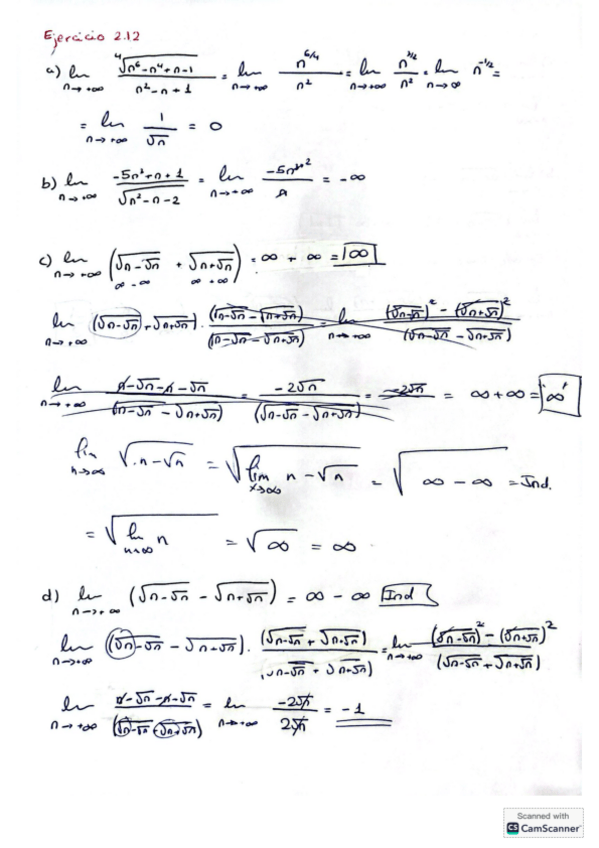 Ejercicio 2.12
a) lim n→+∞ ⁴√(n⁶-n⁴+n-1) / (n²-n+1) = lim n→+∞ n^(6/4) / n² = lim n→+∞ n^(3/2) / n² = lim n→∞ n^(-1/2) =
= lim n→+∞ 1/√n = 0
b) lim n→+∞ (-5n³+n+1) / √(n²-n-2) = lim n→+∞ -5n² / n = -∞
c) lim n→+∞ (√(n-√n) + √(n+√n)) = ∞ + ∞ = ∞
∞ - ∞ ∞ + ∞
lim n→+∞ (√(n-√n) + √(n+√n)) · (√(n-√n) - √(n+√n)) / (√(n-√n) - √(n+√n)) = lim n→+∞ ((√(n-√n))² - (√(n+√n))²) / (√(n-√n) - √(n+√n))
lim n→+∞ (n-√n-n-√n) / (√(n-√n) - √(n+√n)) = -2√n / (√(n-√n) - √(n+√n)) = -2√n = ∞+∞ = "∞"
lim n→∞ √(n-√n) = √(lim x→∞ n-√n) = √(∞-∞) = Ind.
= √(lim n→∞ n) = √∞ = ∞.
d) lim n→+∞ (√(n-√n) - √(n+√n)) = ∞ - ∞ Ind
lim n→+∞ (√(n-√n) - √(n+√n)) · (√(n-√n) + √(n+√n)) / (√(n-√n) + √(n+√n)) = lim n→+∞ ((√(n-√n))² - (√(n+√n))²) / (√(n-√n) + √(n+√n))
lim n→+∞ (n-√n-n-√n) / (√(n-√n) + √(n+√n)) = lim n→+∞ -2√n / 2√n = -1
Scanned with
CS CamScanner